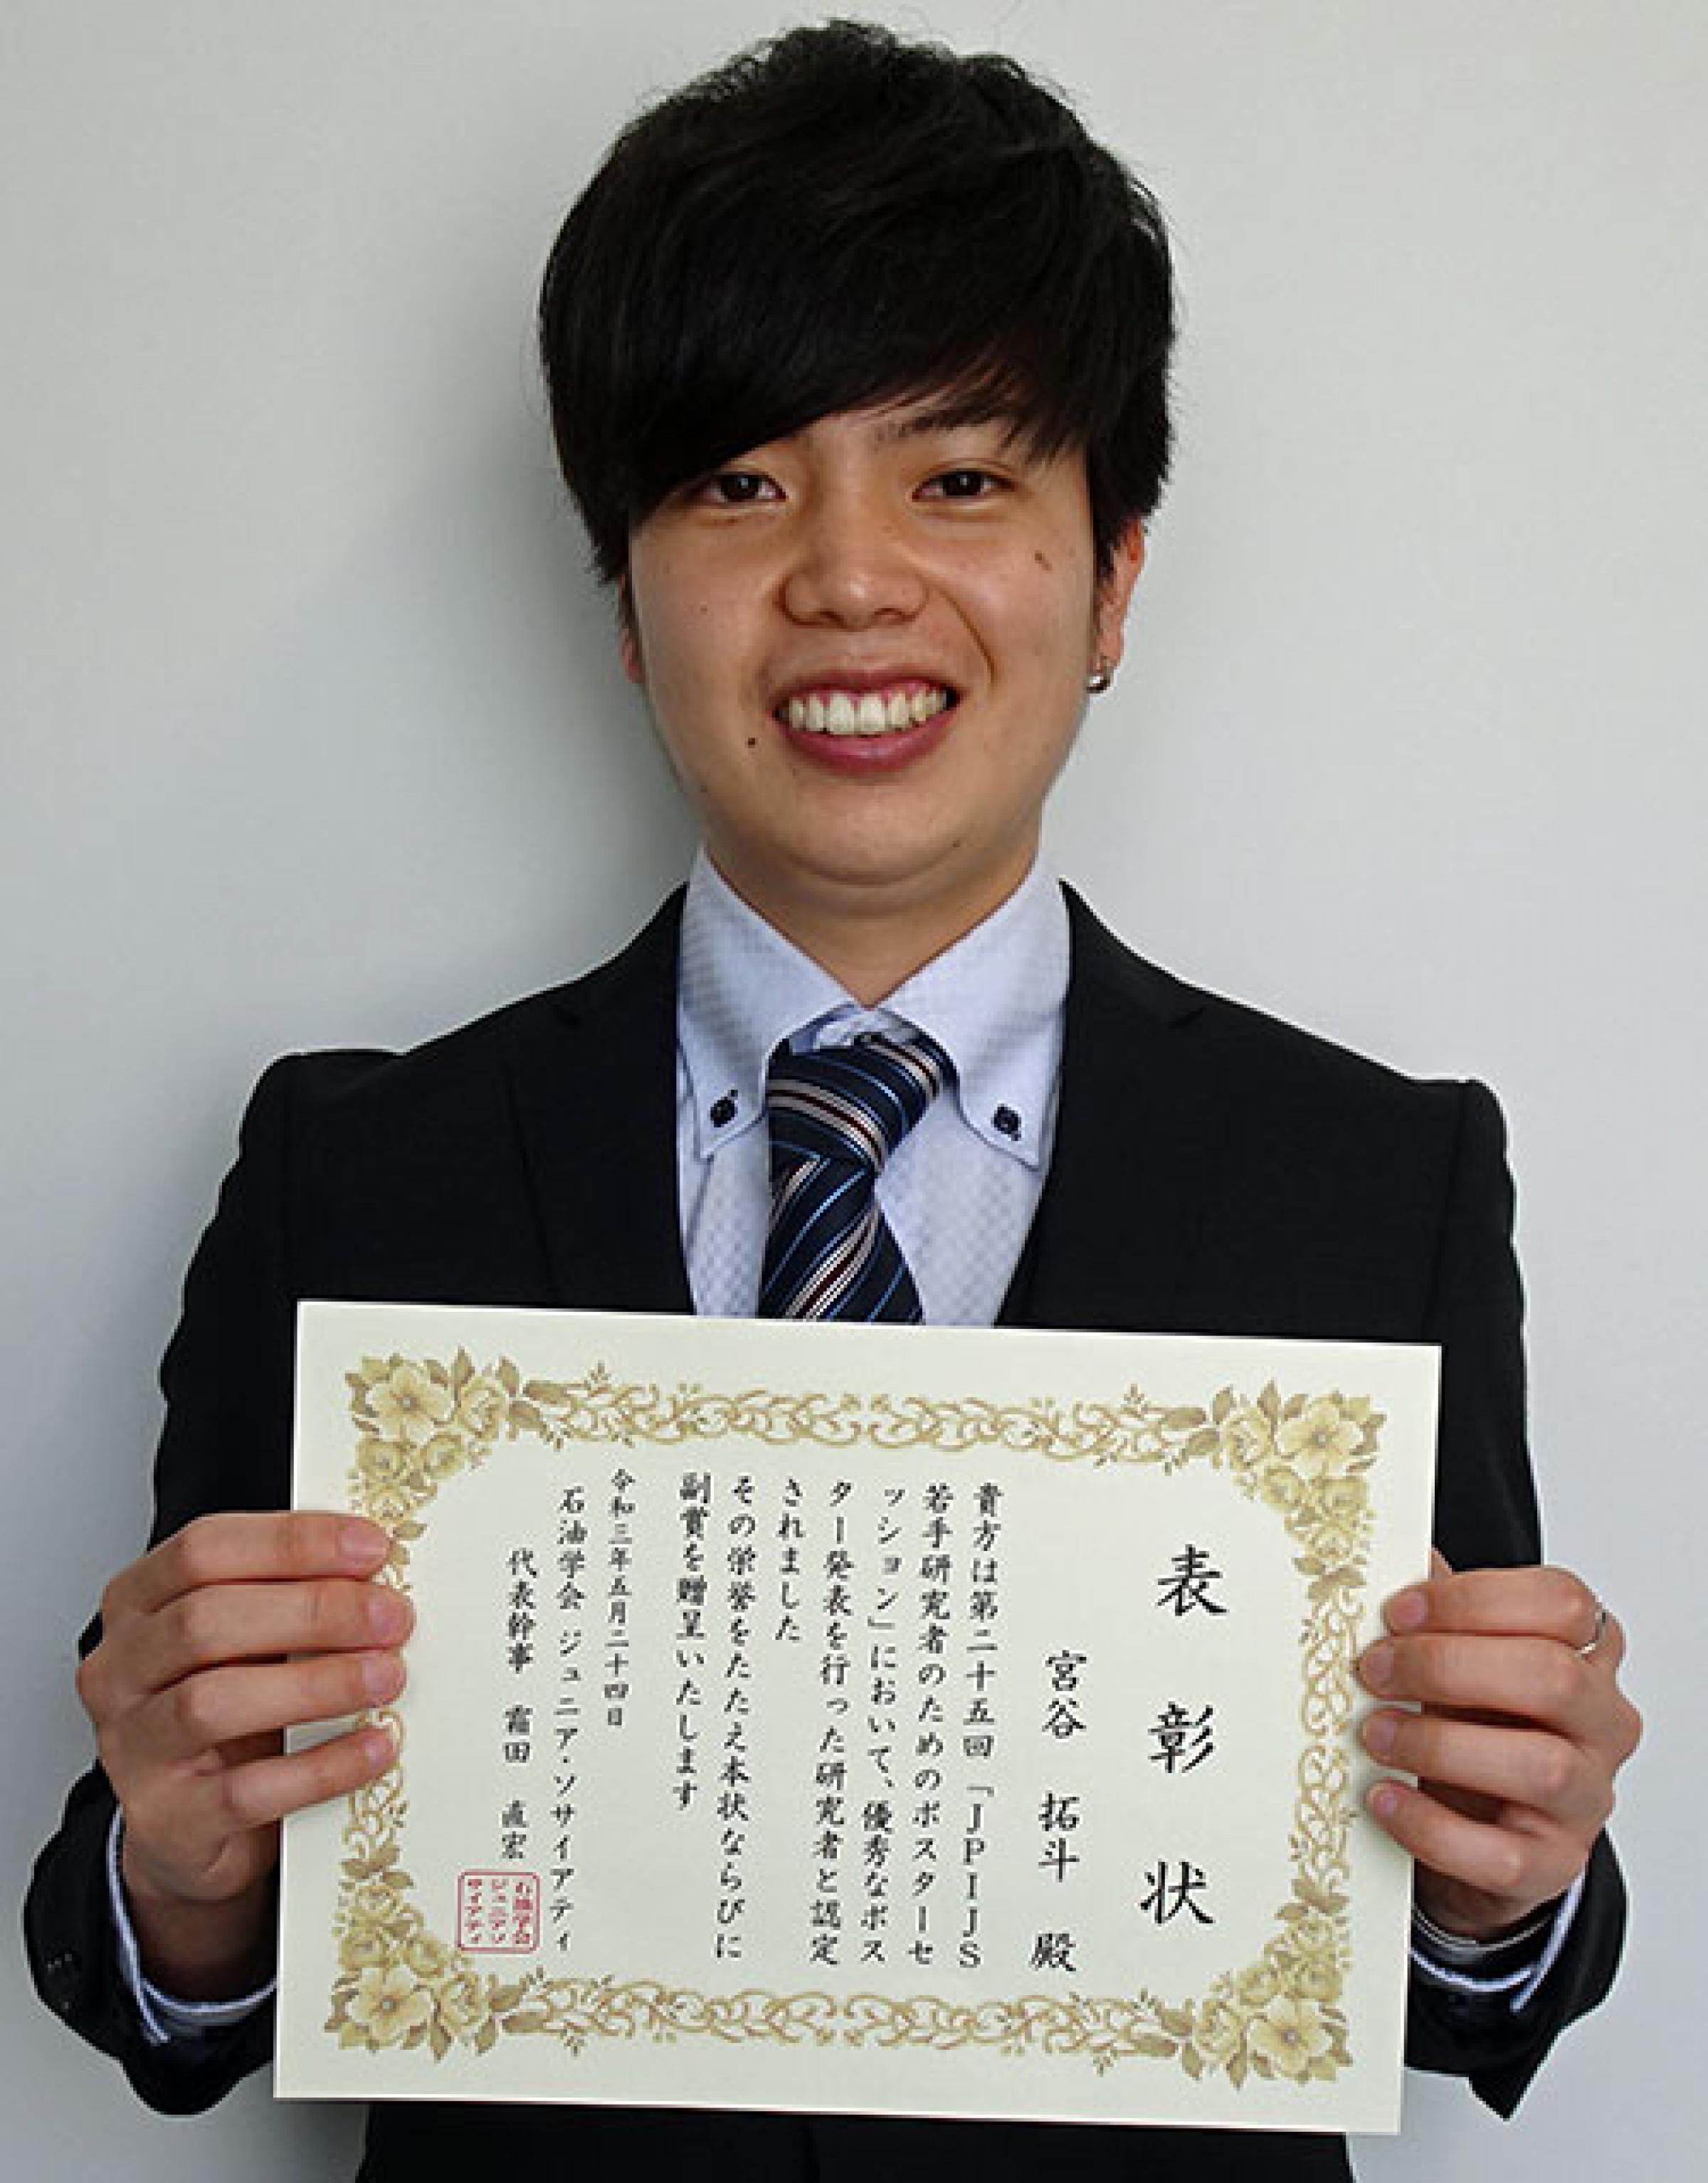 表彰状
宮谷 拓斗 殿
貴方は第二十五回「JPIJS
若手研究者のためのポスターセ
ッション」において、優秀なポス
ター発表を行った研究者と認定
されました
その栄誉をたたえ本状ならびに
副賞を贈呈いたします
令和三年五月二十四日
石油学会 ジュニア・ソサイアティ
代表幹事 霜田 直宏
石油学会
ジュニア・ソ
サイアティ